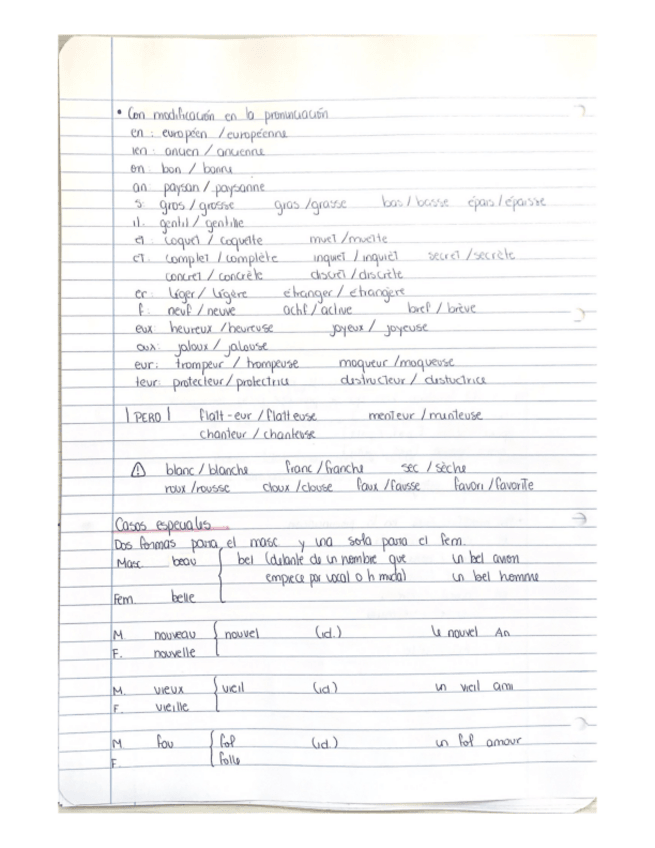 • Con modificación en la pronunciación
en : européen / européenne
ien : ancien / ancienne
on : bon / bonne
an paysan / paysanne
s: gros / grosse gras / grasse bas / basse épais / épaisse
il. gentil / gentille
et: coquet / coquette muet / muette
et: complet / complète inquiet / inquièt secret / secrète
concret / concrète discret / discrète
er: léger / légère étranger / étrangère
f: neuf / neuve actif / active bref / brève
eux heureux / heureuse joyeux / joyeuse
oux: jaloux / jalouse
eur: trompeur / trompeuse moqueur / moqueuse
teur: protecteur / protectrice destructeur / destuctrice
| PERO | flatt-eur / flatteuse menteur / menteuse
chanteur / chanteuse
⚠ blanc / blanche franc / franche sec / sèche
roux / rousse doux / douse faux / fausse favori / favorite
Casos especiales
Dos formas para el masc y una sola para el fem.
Masc beau { bel (delante de un nombre que un bel avion
empiece por vocal o h muda) un bel homme
Fem. belle
M. nouveau { nouvel (id.) le nouvel An
F. nouvelle
M. vieux { vieil (id) un vieil ami
F. vieille
M fou { fol (id.) un fol amour
F. folle